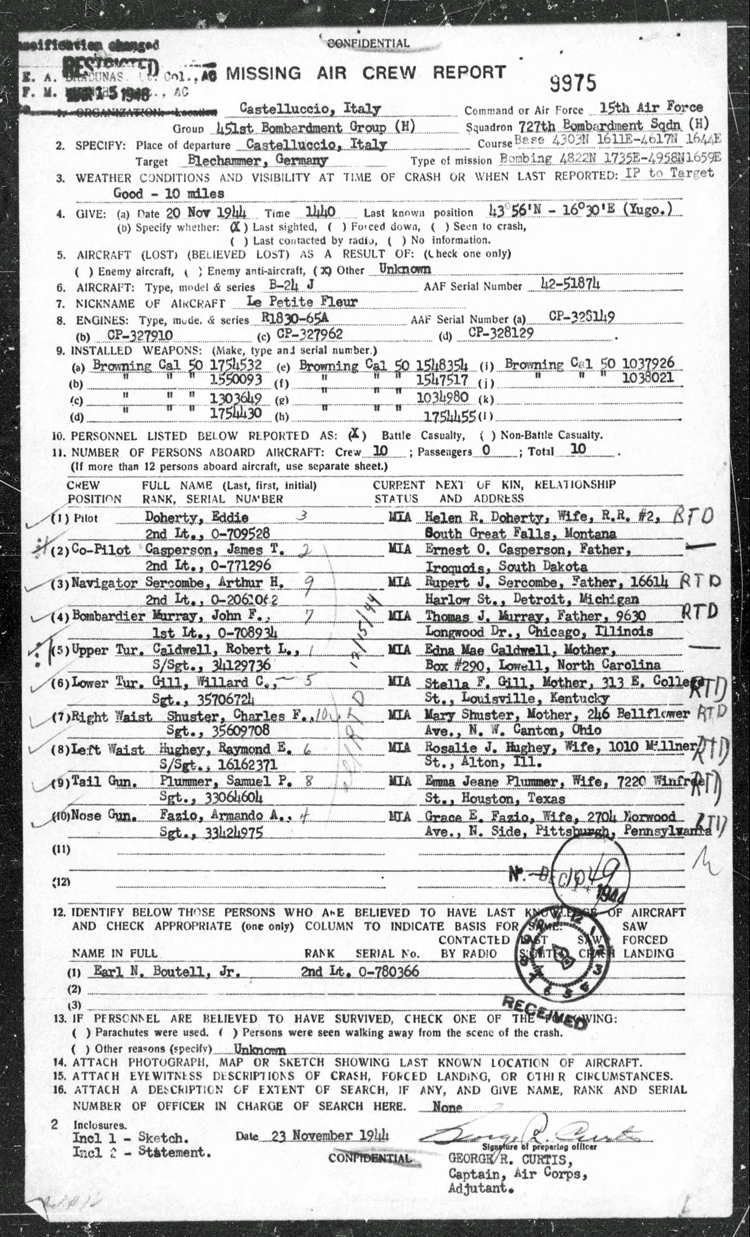 CONFIDENTIAL
Classification changed
RESTRICTED
E. A. BRADUNAS, Lt. Col., AC
F. M. , AC
MAR 15 1946
MISSING AIR CREW REPORT
9975
1. ORGANIZATION: Location Castelluccio, Italy Command or Air Force 15th Air Force
Group 451st Bombardment Group (H) Squadron 727th Bombardment Sqdn (H)
2. SPECIFY: Place of departure Castelluccio, Italy Course Base 4303N 1611E-4617N 1644E
Target Blechammer, Germany Type of mission Bombing 4822N 1735E-4958N1659E
3. WEATHER CONDITIONS AND VISIBILITY AT TIME OF CRASH OR WHEN LAST REPORTED: IP to Target
Good - 10 miles
4. GIVE: (a) Date 20 Nov 1944 Time 1440 Last known position 43°56'N - 16°30'E (Yugo.)
(b) Specify whether: (X) Last sighted, ( ) Forced down, ( ) Seen to crash,
( ) Last contacted by radio, ( ) No information.
5. AIRCRAFT (LOST) (BELIEVED LOST) AS A RESULT OF: (Check one only)
( ) Enemy aircraft, ( ) Enemy anti-aircraft, (X) Other Unknown
6. AIRCRAFT: Type, model & series B-24 J AAF Serial Number 42-51874
7. NICKNAME OF AIRCRAFT Le Petite Fleur
8. ENGINES: Type, mode. & series R1830-65A AAF Serial Number (a) CP-328149
(b) CP-327910 (c) CP-327962 (d) CP-328129
9. INSTALLED WEAPONS: (Make, type and serial number.)
(a) Browning Cal 50 1754532 (e) Browning Cal 50 1548354 (i) Browning Cal 50 1037926
(b) " " " 1550093 (f) " " " 1547517 (j) " " " 1038021
(c) " " " 1303649 (g) " " " 1034980 (k)
(d) " " " 1754430 (h) " " " 1754455 (l)
10. PERSONNEL LISTED BELOW REPORTED AS: (X) Battle Casualty, ( ) Non-Battle Casualty.
11. NUMBER OF PERSONS ABOARD AIRCRAFT: Crew 10 ; Passengers 0 ; Total 10 .
(If more than 12 persons aboard aircraft, use separate sheet.)
CREW FULL NAME (Last, first, initial) CURRENT NEXT OF KIN, RELATIONSHIP
POSITION RANK, SERIAL NUMBER STATUS AND ADDRESS
(1) Pilot Doherty, Eddie 3 MIA Helen R. Doherty, Wife, R.R. #2, RTD
2nd Lt., O-709528 South Great Falls, Montana
(2) Co-Pilot Casperson, James T. 2 MIA Ernest O. Casperson, Father, —
2nd Lt., O-771296 Iroquois, South Dakota
(3) Navigator Sercombe, Arthur H. 9 MIA Rupert J. Sercombe, Father, 16614 RTD
2nd Lt., O-2061062 Harlow St., Detroit, Michigan
(4) Bombardier Murray, John F., 7 MIA Thomas J. Murray, Father, 9630 RTD
1st Lt., O-708934 Longwood Dr., Chicago, Illinois
(5) Upper Tur. Caldwell, Robert L., 1 MIA Edna Mae Caldwell, Mother, —
S/Sgt., 34129736 Box #290, Lowell, North Carolina
(6) Lower Tur. Gill, Willard C., 5 MIA Stella F. Gill, Mother, 313 E. College RTD
Sgt., 35706724 St., Louisville, Kentucky
(7) Right Waist Shuster, Charles F., 10 MIA Mary Shuster, Mother, 246 Bellflower RTD
Sgt., 35609708 Ave., N. W. Canton, Ohio
(8) Left Waist Hughey, Raymond E. 6 MIA Rosalie J. Hughey, Wife, 1010 Millner RTD
S/Sgt., 16162371 St., Alton, Ill.
(9) Tail Gun. Plummer, Samuel P. 8 MIA Emma Jeane Plummer, Wife, 7220 Winfree RTD
Sgt., 33064604 St., Houston, Texas
(10) Nose Gun. Fazio, Armando A., 4 MIA Grace E. Fazio, Wife, 2704 Norwood RTD
Sgt., 33424975 Ave., N. Side, Pittsburgh, Pennsylvania
all RTD 12/15/44
(11)
(12)
DEC 1944
12. IDENTIFY BELOW THOSE PERSONS WHO ARE BELIEVED TO HAVE LAST KNOWLEDGE OF AIRCRAFT
AND CHECK APPROPRIATE (one only) COLUMN TO INDICATE BASIS FOR SAME: SAW
CONTACTED LAST SAW FORCED
NAME IN FULL RANK SERIAL No. BY RADIO SIGHTED CRASH LANDING
(1) Earl N. Boutell, Jr. 2nd Lt. O-780366
(2)
(3)
RECEIVED
13. IF PERSONNEL ARE BELIEVED TO HAVE SURVIVED, CHECK ONE OF THE FOLLOWING:
( ) Parachutes were used. ( ) Persons were seen walking away from the scene of the crash.
( ) Other reasons (specify) Unknown
14. ATTACH PHOTOGRAPH, MAP OR SKETCH SHOWING LAST KNOWN LOCATION OF AIRCRAFT.
15. ATTACH EYEWITNESS DESCRIPTIONS OF CRASH, FORCED LANDING, OR OTHER CIRCUMSTANCES.
16. ATTACH A DESCRIPTION OF EXTENT OF SEARCH, IF ANY, AND GIVE NAME, RANK AND SERIAL
NUMBER OF OFFICER IN CHARGE OF SEARCH HERE. None
2 Inclosures.
Incl 1 - Sketch. Date 23 November 1944 George R. Curtis
Incl 2 - Statement. Signature of preparing officer
CONFIDENTIAL GEORGE R. CURTIS,
Captain, Air Corps,
Adjutant.